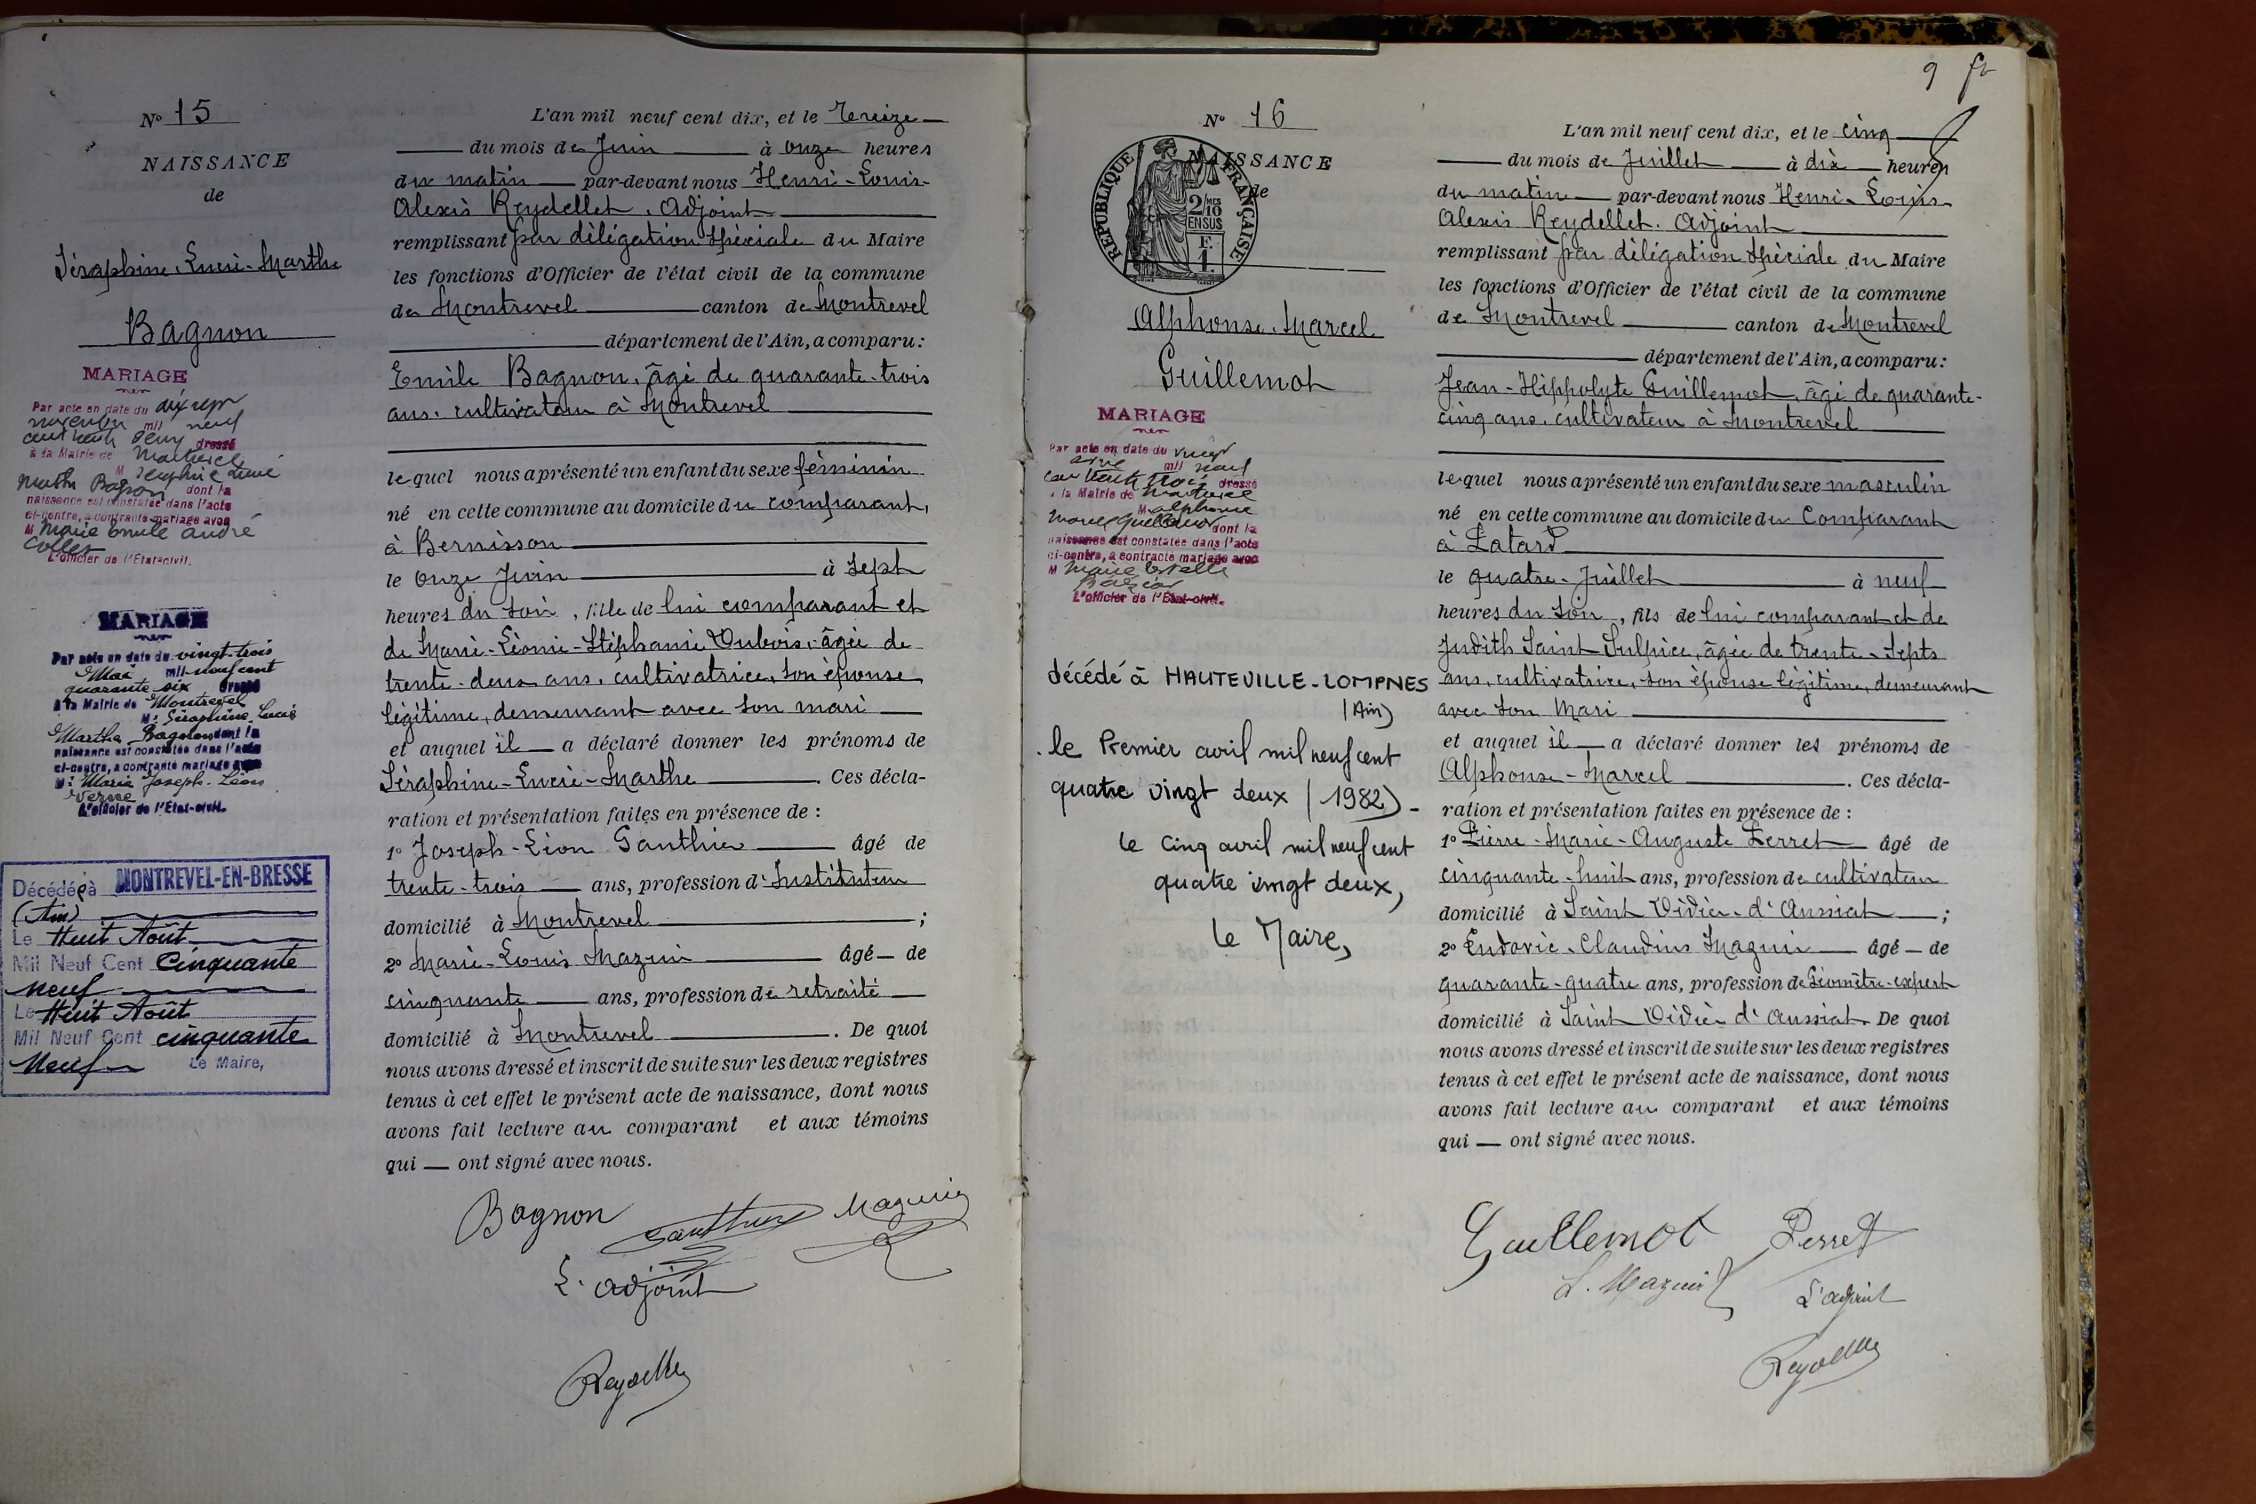 N° 15
NAISSANCE
de
Séraphine-Lucie-Marthe
Bagnon
MARIAGE
Par acte en date du dix sept
novembre mil neuf
cent trente deux dressé
à la Mairie de Montrevel
M Séraphine Lucie
Marthe Bagnon dont la
naissance est constatée dans l'acte
ci-contre, a contracté mariage avec
M Marie Emile André
L'officier de l'État-civil.
MARIAGE
Par acte en date du vingt-trois
Mai mil-neuf cent
quarante six dressé
à la Mairie de Montrevel
M: Séraphine Lucie
Marthe Bagnon dont la
naissance est constatée dans l'acte
ci-contre, a contracté mariage avec
M: Marie Joseph-Léon
L'officier de l'État-civil.
Décédée à MONTREVEL-EN-BRESSE
(Ain)
Le Huit Août
Mil Neuf Cent Cinquante
neuf
Le Huit Août
Mil Neuf Cent cinquante
Neuf Le Maire,
L'an mil neuf cent dix, et le Treize
du mois de Juin à onze heures
du matin par-devant nous Henri-Louis-
Alexis Reydellet, Adjoint
remplissant par délégation spéciale du Maire
les fonctions d'Officier de l'état civil de la commune
de Montrevel canton de Montrevel
département de l'Ain, a comparu:
Emile Bagnon, âgé de quarante-trois
ans, cultivateur à Montrevel
lequel nous a présenté un enfant du sexe féminin
né en cette commune au domicile du comparant,
à Bernisson
le onze Juin à sept
heures du soir, fille de lui comparant et
de Marie-Léonie-Stéphanie Dubois, âgée de
trente-deux ans, cultivatrice, son épouse
légitime, demeurant avec son mari
et auquel il a déclaré donner les prénoms de
Séraphine-Lucie-Marthe . Ces décla-
ration et présentation faites en présence de :
1° Joseph-Léon Gauthier âgé de
trente-trois ans, profession d'Instituteur
domicilié à Montrevel ;
2° Marie-Louis Mazuir âgé de
cinquante ans, profession de retraité
domicilié à Montrevel . De quoi
nous avons dressé et inscrit de suite sur les deux registres
tenus à cet effet le présent acte de naissance, dont nous
avons fait lecture au comparant et aux témoins
qui ont signé avec nous.
Bagnon Gauthier Mazuir
L'adjoint
Reydellet
9
N° 16
NAISSANCE
de
REPUBLIQUE FRANÇAISE
2/10 MES
EN SUS
F.
1.
Alphonse-Marcel
Guillemot
MARIAGE
Par acte en date du vingt
mil neuf
cent trente trois dressé
à la Mairie de Montrevel
M Alphonse
Marcel Guillemot dont la
naissance est constatée dans l'acte
ci-contre, a contracté mariage avec
M Marie Estelle
L'officier de l'État-civil.
décédé à HAUTEVILLE-LOMPNES
(Ain)
le Premier avril mil neuf cent
quatre vingt deux (1982)-
le cinq avril mil neuf cent
quatre vingt deux,
Le Maire,
L'an mil neuf cent dix, et le cinq
du mois de Juillet à dix heures
du matin par-devant nous Henri-Louis-
Alexis Reydellet. Adjoint
remplissant par délégation spéciale du Maire
les fonctions d'Officier de l'état civil de la commune
de Montrevel canton de Montrevel
département de l'Ain, a comparu:
Jean-Hippolyte Guillemot, âgé de quarante-
cinq ans, cultivateur à Montrevel
lequel nous a présenté un enfant du sexe masculin
né en cette commune au domicile du Comparant
à Latard
le quatre-Juillet à neuf
heures du soir, fils de lui comparant et de
Judith Saint Sulpice, âgée de trente-sept
ans, cultivatrice, son épouse légitime, demeurant
avec son Mari
et auquel il a déclaré donner les prénoms de
Alphonse-Marcel . Ces décla-
ration et présentation faites en présence de :
1° Pierre-Marie-Auguste Perret âgé de
cinquante-huit ans, profession de cultivateur
domicilié à Saint Didier-d'Aussiat ;
2° Ludovic-Claudius Mazuir âgé de
quarante-quatre ans, profession de Géomètre-expert
domicilié à Saint Didier d'Aussiat. De quoi
nous avons dressé et inscrit de suite sur les deux registres
tenus à cet effet le présent acte de naissance, dont nous
avons fait lecture au comparant et aux témoins
qui ont signé avec nous.
Guillemot Perret
L. Mazuir L'adjoint
Reydellet